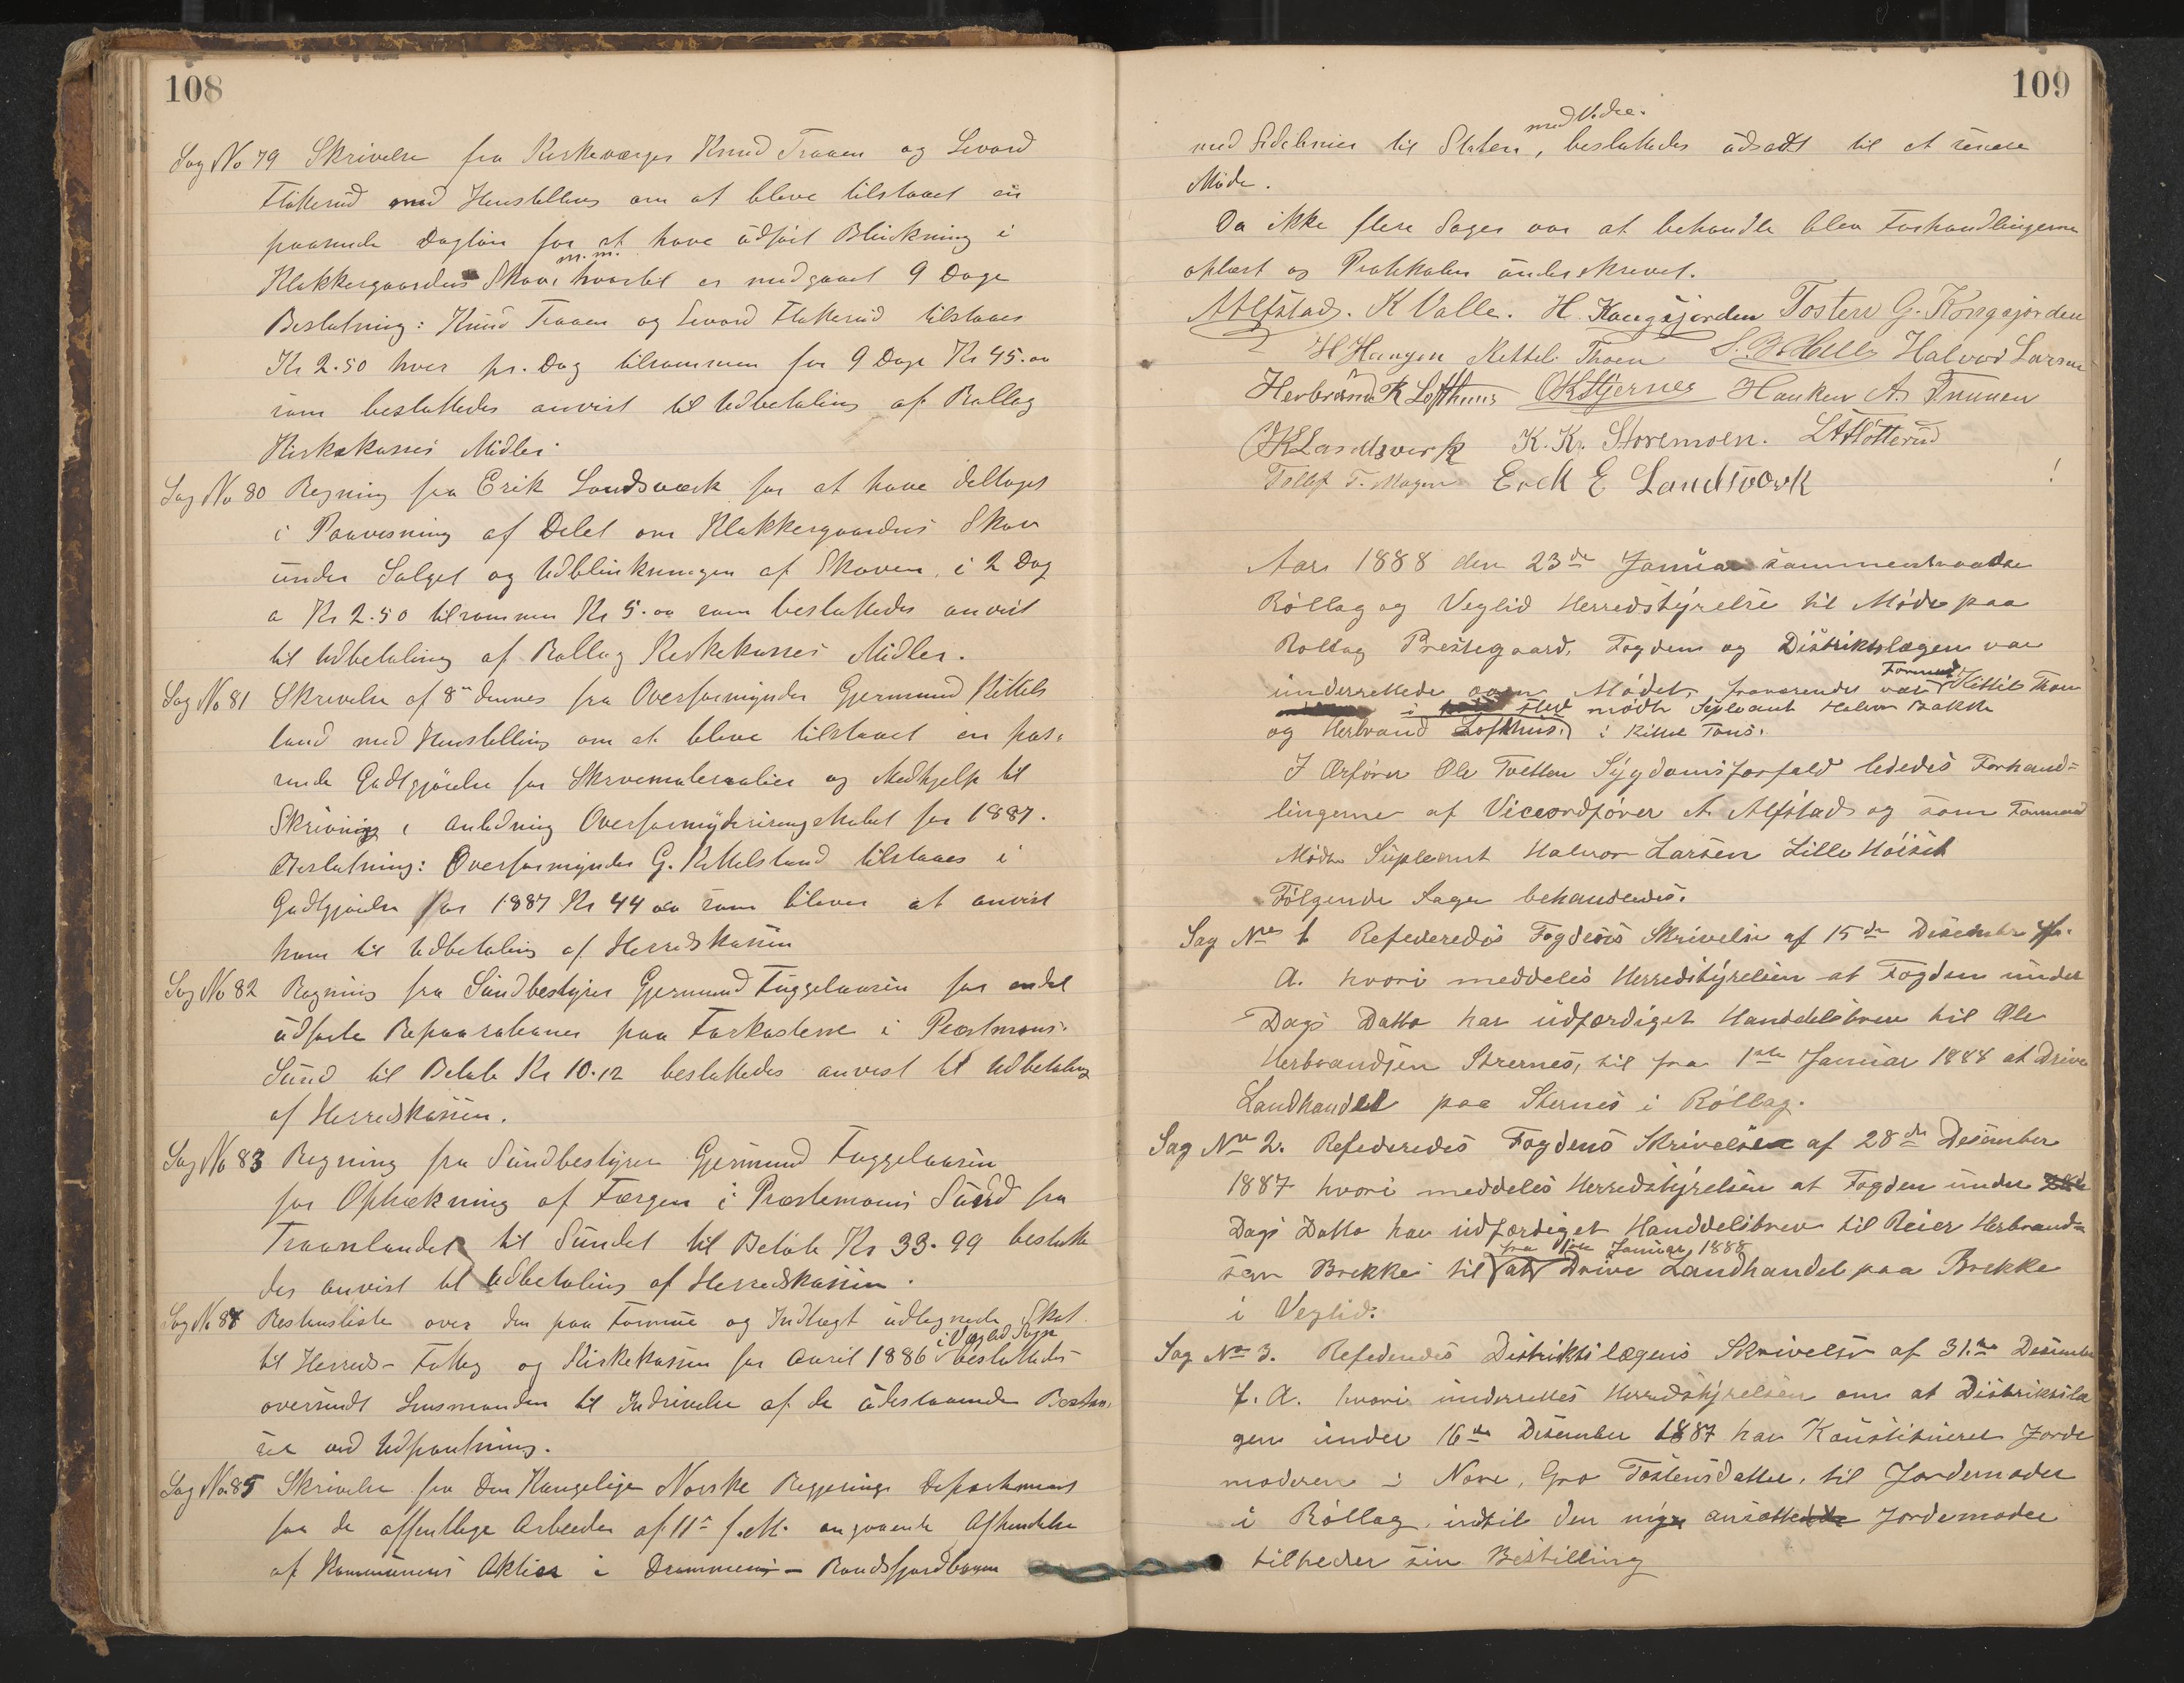 108
Sag No 79 Skrivelse fra Kirkeværger Knud Traaen og Sevard
Flotterud med Henstilling om at blive tilstaaet en
passende Dagløn for at have udført Blinkning i
m. m.
Klakkergaardens Skov hvortil er medgaaet 9 Dage
Beslutning: Knud Traaen og Sevard Flotterud tilstaaes
Kr 2.50 hver pr. Dag tilsammen for 9 Dage Kr 45.00
som besluttedes anvist til Udbetaling af Rollag
Kirkekasses Midler.
Sag No 80 Regning fra Erik Landsværk for at have deltaget
i Paavisning af Delet om Klakkergaardens Skov
under Salget og Udblinkningen af Skoven, i 2 Dag
a Kr 2.50 tilsammen Kr 5.00 som besluttedes anvist
til Udbetaling af Rollag Kirkekasses Midler.
Sag No 81 Skrivelse af 8de dennes fra Overformynder Gjermund Kittels
land med Henstilling om at blive tilstaaet en pas-
sende Godtgjørelse for Skrivematerialier og Medhjelp til
Skrivning i Anledning Overformynderiregnskabet for 1887.
Beslutning: Overformynder G. Kittelsland tilstaaes i
Godtgjørelse for 1887 Kr 44 00 som bliver at anvist
ham til Udbetaling af Herredskassen
Sag No 82 Regning fra Sundbestyrer Gjermund Fuggelaasen for endel
udførte Reparationer paa Farkosterne i Præstmons-
Sund til Beløb Kr 10.12 besluttedes anvist til Udbetaling
af Herredskassen.
Sag No 83 Regning fra Sundbestyrer Gjermund Fuggelaasen
for Optrækning af Færgen i Præstemoens Sund fra
Traanlandet til Sundet til Beløb Kr 33.99 beslutte
des anvist til Udbetaling af Herredskassen.
Sag No 84 Restanseliste over den paa Formue og Indtægt udlignede Skat
i Veglid Sogn
til Herreds- Fattig og Kirkekassen for Aaret 1886 besluttedes
oversendt Lensmanden til Inddrivelse af de udestaaende Restan-
ser ved Udpantning.
Sag No 85 Skrivelse fra Den Kongelige Norske Regjerings Departement
for de offentlige Arbeider af 11te f. M. angaaende Afhendelse
af Kommunens Aktier i Drammens - Randsfjordbanen
109
med Vedr.
med til Staten, besluttedes udsadt til et senere
Møde.
Da ikke flere Sager var at behandle blev Forhandlingerne
oplæst og Protokolen underskrevet.
A Alfstad. K Valle. H. Kongsjorden Tosten G. Kongsjorden
H Haugen Kettil Thoen Halvor Larsen
Herbrand R Lofthuus OKStjernes Hanken A. Traaen
OKLandsverk K. Kr. Storemoen. LAFlotterud
Tollef T. Mogen Erek E Landsværk
Aar 1888 den 23de Januar sammentraadte
Rollag og Veglid Herredstyrelse til Møde paa
Rollag Prestegaard. Fogden og Distriktslægen var
Formand
underrettede om Mødet, fraværende var Kittil Thoen
i Sted mødte Supleant Halvor Bakke
og Herbrand Lofthus. i Kittil Tons.
I Orfører Ole Tvetten Sygdomsforfald lededes Forhand=
lingerne af Viceordfører A. Alfstad og som Formand
Mødte Supleant Halvor Larsen Lille Høiset
Følgende Sager behandledes.
Sag No 1 Refereredes Fogdens Skrivelse af 15de Desember f.
A. hvori meddeles Herredstyrelsen at Fogden under
Dags Datto har udfærdiget Handelsbrev til Ole
Herbrandsen Sternes, til fra 1ste Januar 1888 at Drive
Landhandel paa Sternes i Rollag.
Sag No 2. Refereredes Fogdens Skrivelse af 28de Desember
1887 hvori meddeles Herredstyrelsen at Fogden under
Dags Datto har udfærdiget Handdelsbrev til Reier Herbrand=
fra 1ste Januar 1888
sen Brekke til at Drive Landhandel paa Brekke
i Veglid.
Sag No 3. Refereredes Distriktslægens Skrivelse af 31.te Desember
f. A. hvori underrettes Herredstyrelsen om at Distriktslæ
gen under 16de Desember 1887 har Konstitueret Jorde
moderen i Nore, Gro Tostensdatter, til Jordemoder
i Rollag, indtil den nye ansatte Jordemoder
tilteder sin Bestilling